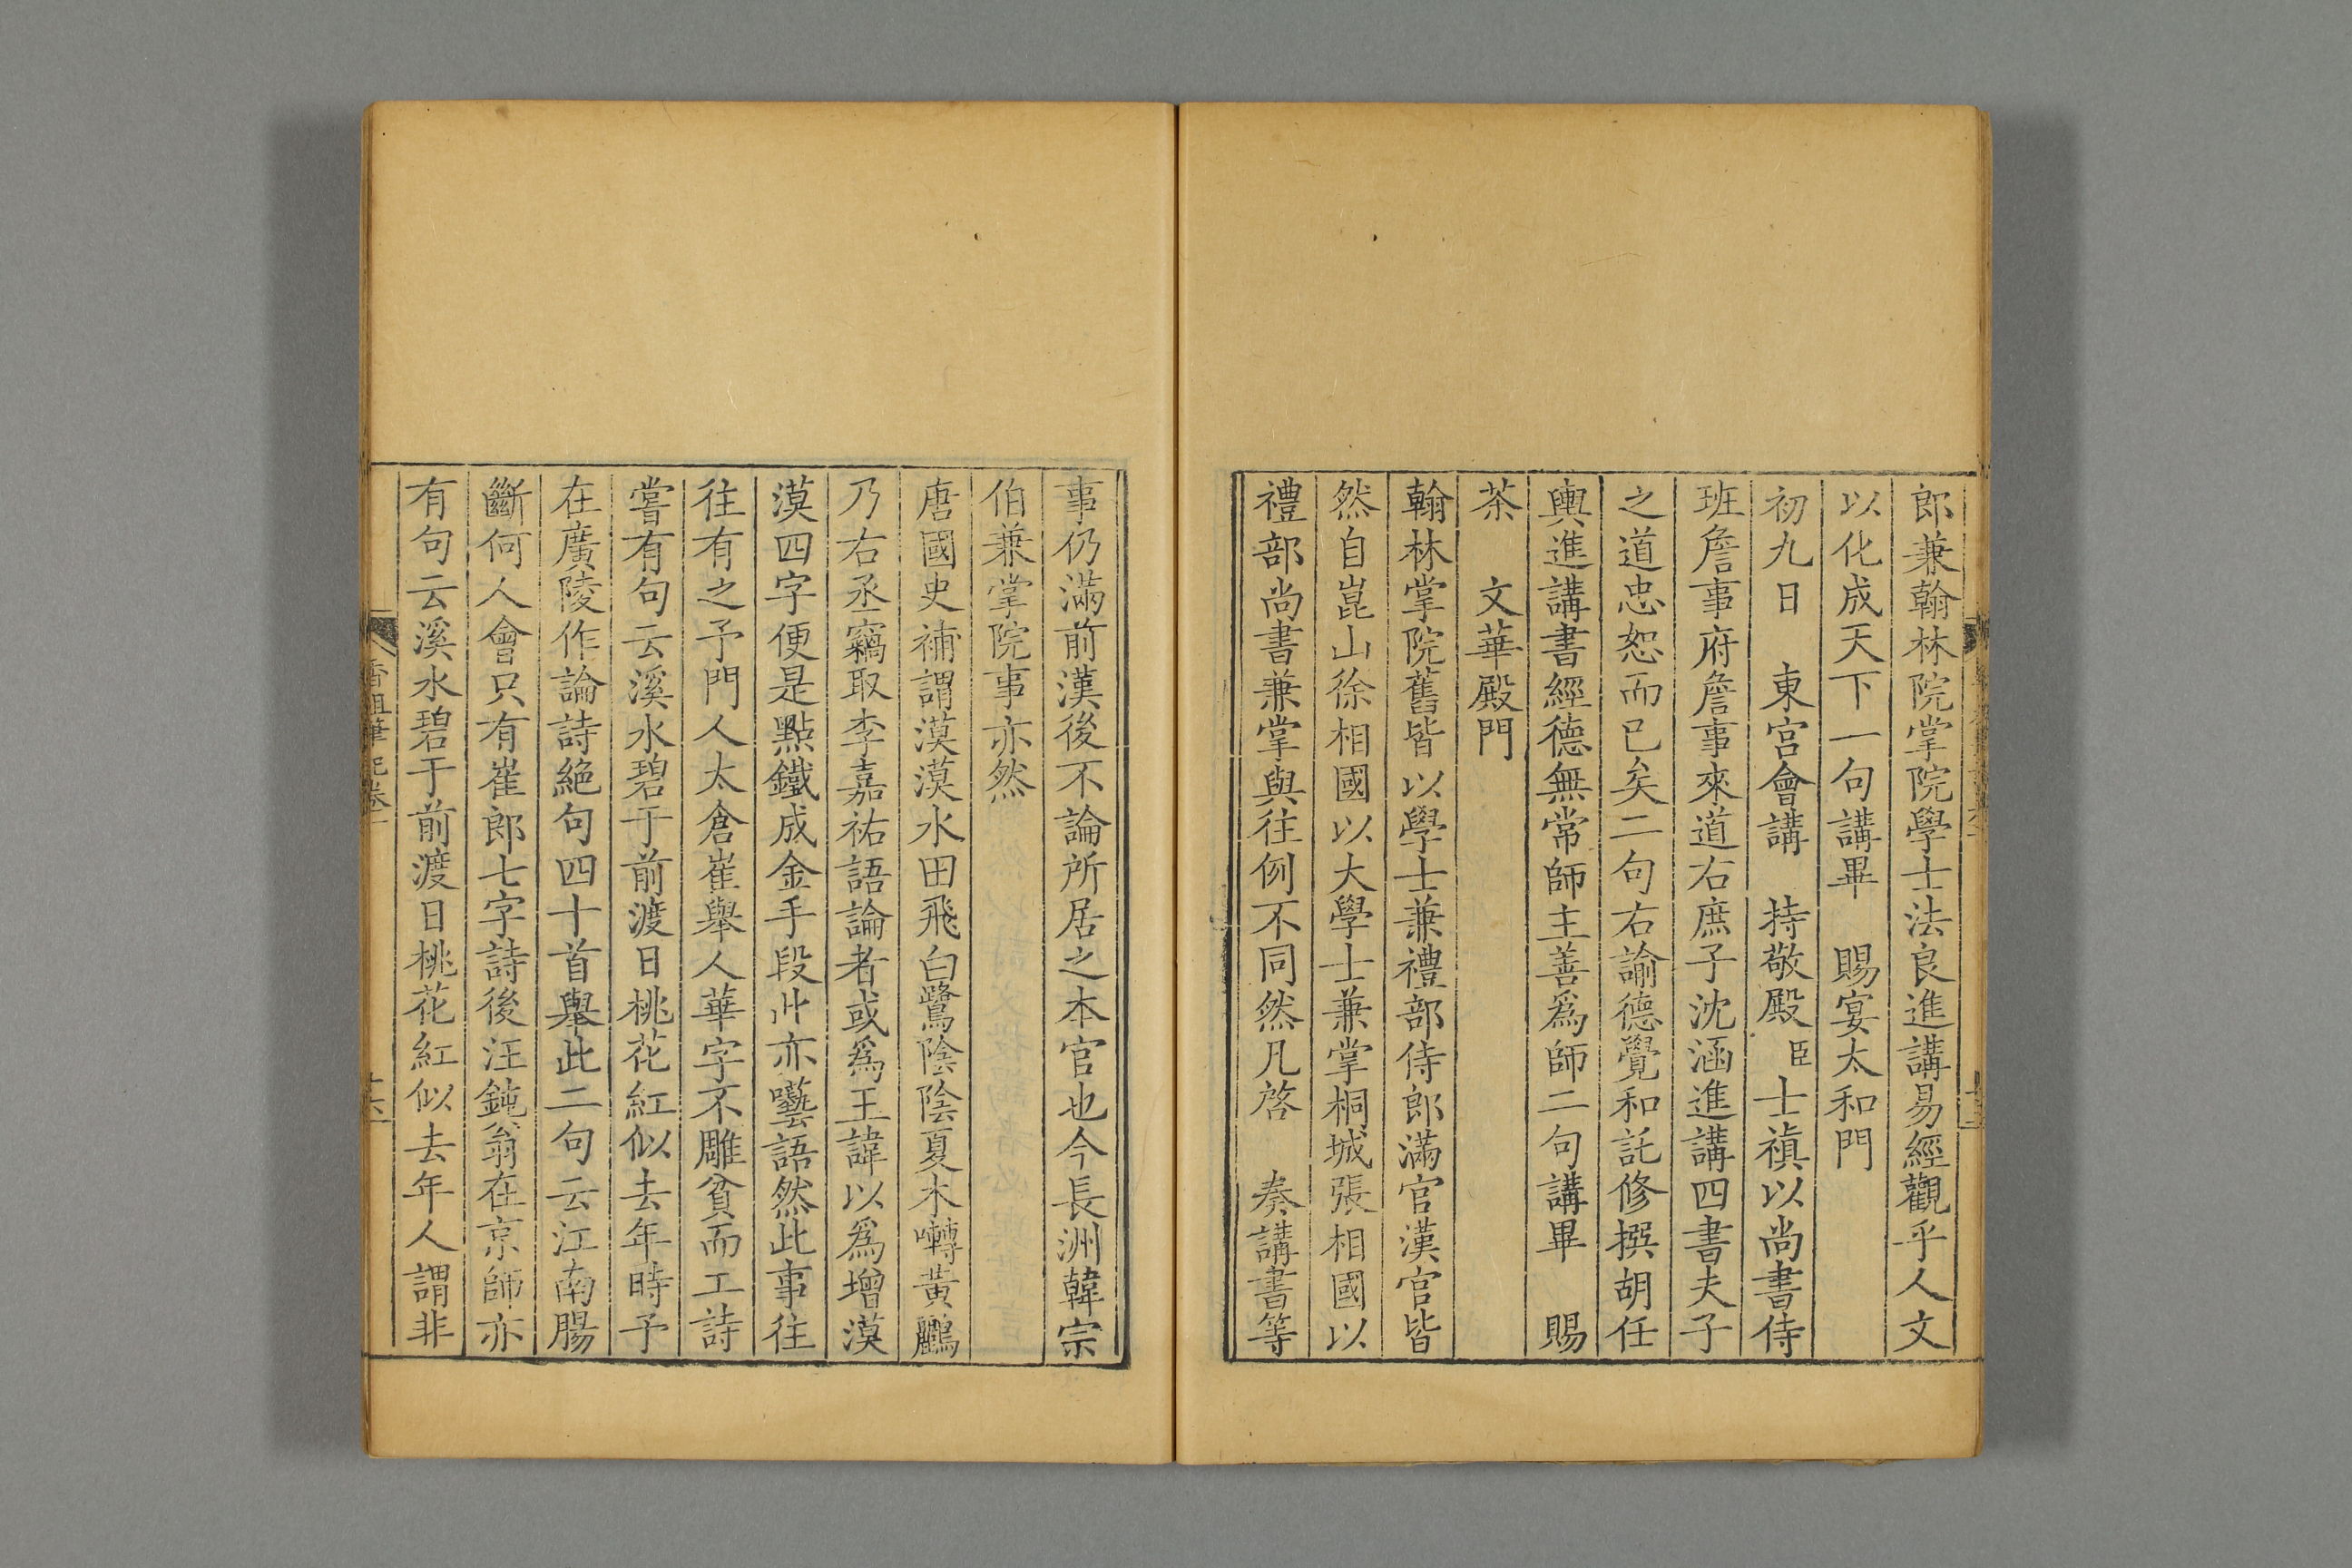 郎兼翰林院掌院學士法良進講易經觀乎人文
以化成天下一句講畢　賜宴太和門
初九日　東宮會講　持敬殿臣士禛以尚書侍
班詹事府詹事來道右庶子沈涵進講四書夫子
之道忠恕而已矣二句右諭德覺和託修撰胡任
輿進講書經德無常師主善爲師二句講畢　賜
茶　文華殿門
翰林掌院舊皆以學士兼禮部侍郎滿官漢官皆
然自崑山徐相國以大學士兼掌桐城張相國以
禮部尚書兼掌與往例不同然凡啓　奏講書等
事仍滿前漢後不論所居之本官也今長洲韓宗
伯兼掌院事亦然
唐國史補謂漠漠水田飛白鷺陰陰夏木囀黃鸝
乃右丞竊取李嘉祐語論者或爲王諱以爲增漠
漠四字便是點鐵成金手段此亦囈語然此事往
往有之予門人太倉崔舉人華字不雕貧而工詩
嘗有句云溪水碧于前渡日桃花紅似去年時予
在廣陵作論詩絕句四十首舉此二句云江南腸
斷何人會只有崔郎七字詩後汪鈍翁在京師亦
有句云溪水碧于前渡日桃花紅似去年人謂非
香祖筆記卷一